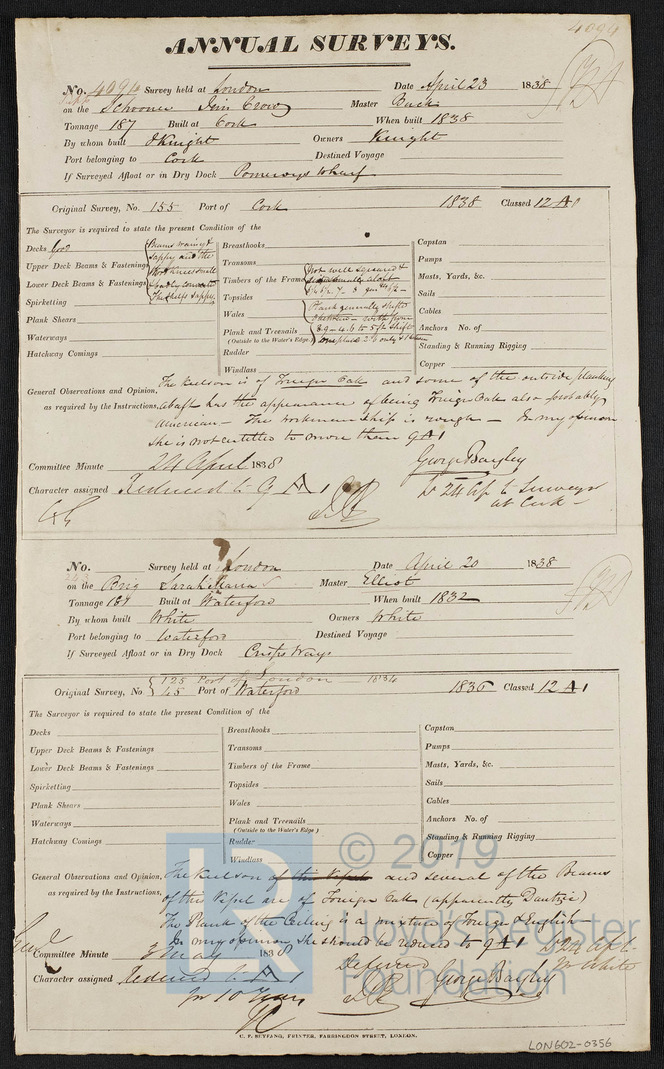 4094
ANNUAL SURVEYS.
No. 4094 Survey held at London Date April 23 1838
on the Schooner Jim Crow Master Buck
Tonnage 187 Built at Cork When built 1838
By whom built J Knight Owners Knight
Port belonging to Cork Destined Voyage
If Surveyed Afloat or in Dry Dock Pomeroys Wharf
Original Survey, No. 155 Port of Cork 1838 Classed 12 A 1
The Surveyor is required to state the present Condition of the
Decks good
Upper Deck Beams & Fastenings
Lower Deck Beams & Fastenings
Spirketting
Plank Shears
Waterways
Hatchway Comings
Beams waney &
sappy and the
knees small
& badly converted
The shelfs sappy
Breasthooks
Transoms
Timbers of the Frame Not well squared &
Topsides
Wales Plank generally shifted
Plank and Treenails
(Outside to the Water's Edge)
Rudder
Windlass
Capstan
Pumps
Masts, Yards, &c.
Sails
Cables
Anchors No. of
Standing & Running Rigging
Copper
General Observations and Opinion, The Keelson is of Foreign Oak and some of the outside planking
as required by the Instructions, abaft has the appearance of being Foreign Oak also probably
American - The workmanship is rough - In my opinion
she is not entitled to more than 9 A 1
Committee Minute 24 April 1838 George Bayley
Character assigned Reduced to 9 A 1
at Cork
No. Survey held at London Date April 20 1838
on the Brig Sarah Maria Master Elliot
Tonnage 181 Built at Waterford When built 1832
By whom built White Owners White
Port belonging to Waterford Destined Voyage
If Surveyed Afloat or in Dry Dock Crisps Ways
125 Port of London 1834
Original Survey, No. 45 Port of Waterford 1836 Classed 12 A 1
The Surveyor is required to state the present Condition of the
Decks
Upper Deck Beams & Fastenings
Lower Deck Beams & Fastenings
Spirketting
Plank Shears
Waterways
Hatchway Comings
Breasthooks
Transoms
Timbers of the Frame
Topsides
Wales
Plank and Treenails
(Outside to the Water's Edge)
Rudder
Windlass
Capstan
Pumps
Masts, Yards, &c.
Sails
Cables
Anchors No. of
Standing & Running Rigging
Copper
General Observations and Opinion, The Keelson of this Vessel and several of the Beams
as required by the Instructions, of this Vessel are of Foreign Oak (apparently Dantzic)
The Plank of the Ceiling is a mixture of Foreign & English -
In my opinion she should be reduced to 9 A 1
Committee Minute 3 May 1838 Deferred
Character assigned Reduced to A 1 George Bayley
for 10 Years
Mr White
C. F. SEYFANG, PRINTER, FARRINGDON STREET, LONDON.
LON602-0356
© 2019
LR
Lloyd's Register
Foundation